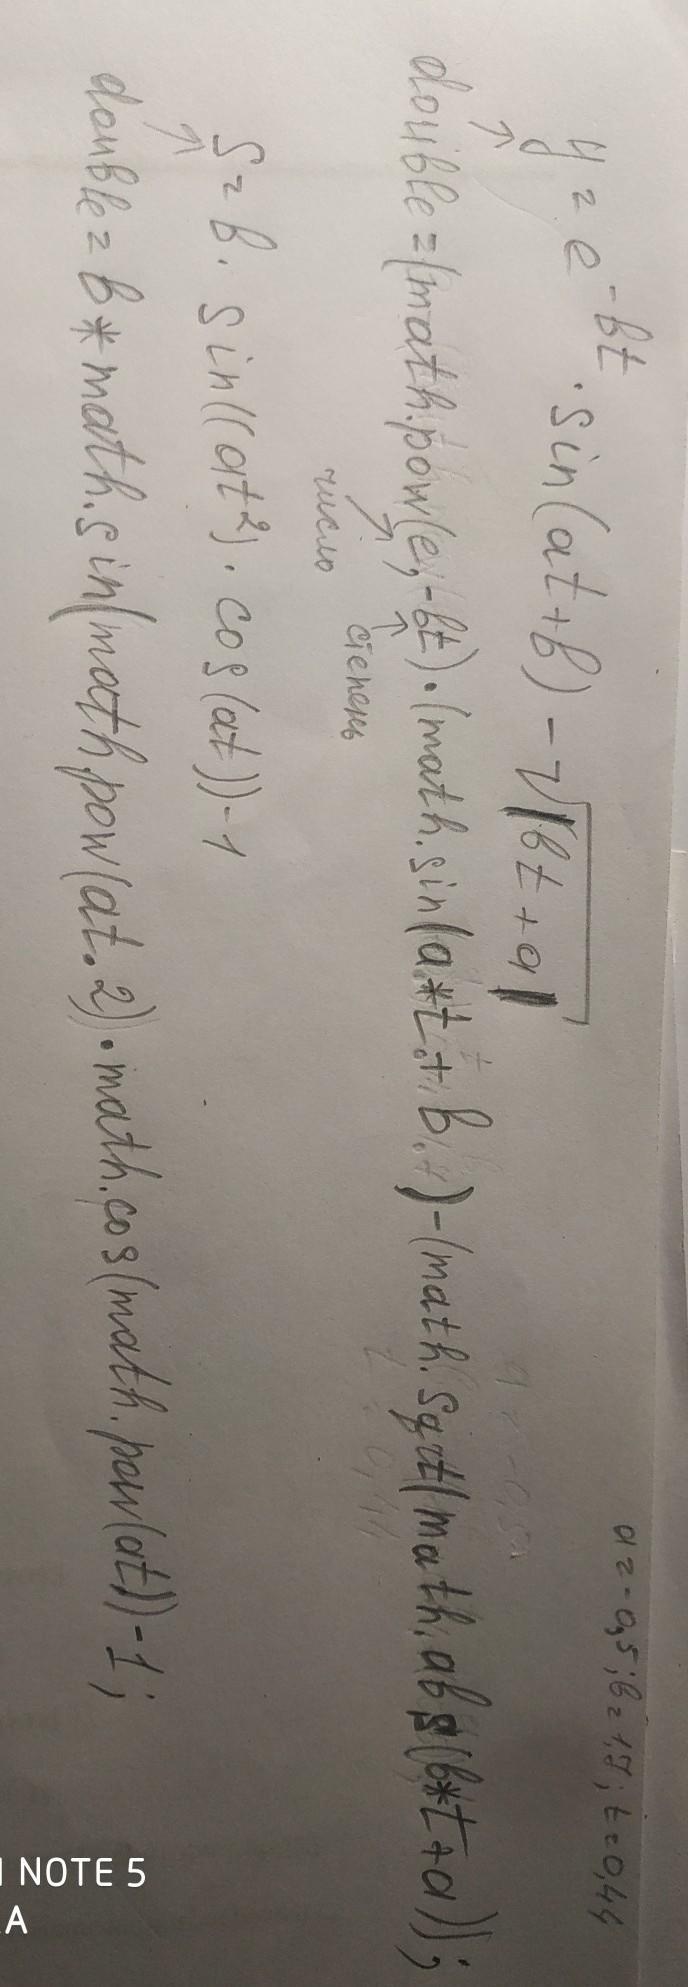 a=-0,5; b=1,7; t=0,44
y = e^-bt · sin(at+b) - √|bt+a|
double=(math.pow(e,-bt)·(math.sin(a*t+b)-(math.sqrt(math.abs(b*t+a));
число
степень
S=b· sin((at²)· cos(at))-1
double= b*math.sin(math.pow(at.2)·math.cos(math.pow(at))-1;
NOTE 5
A